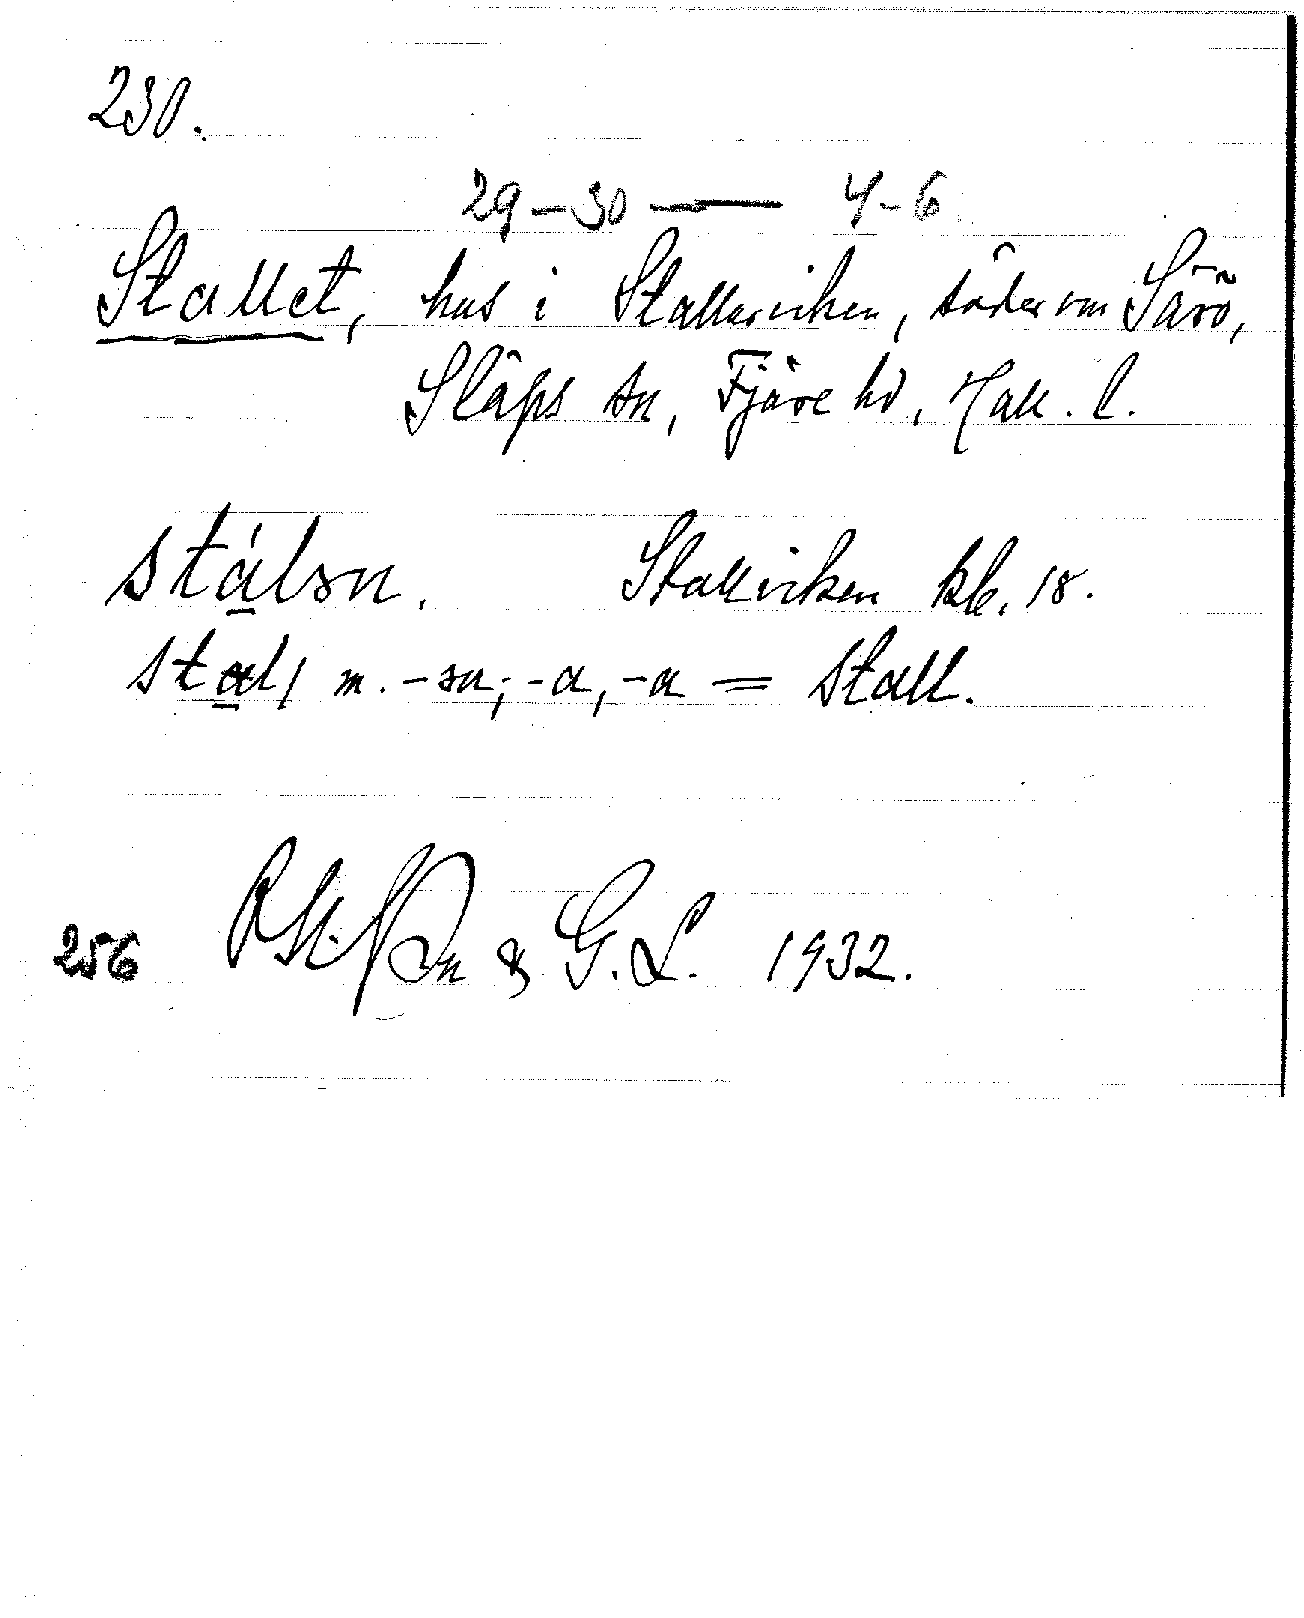 230.
29-30 — 4-6
Stallet, hus i Stallviken, söder om Särö,
Släps sn, Fjäre hd, Hall. l.
Stallviken kb. 18.
m. = stall.
256 & G. L. 1932.